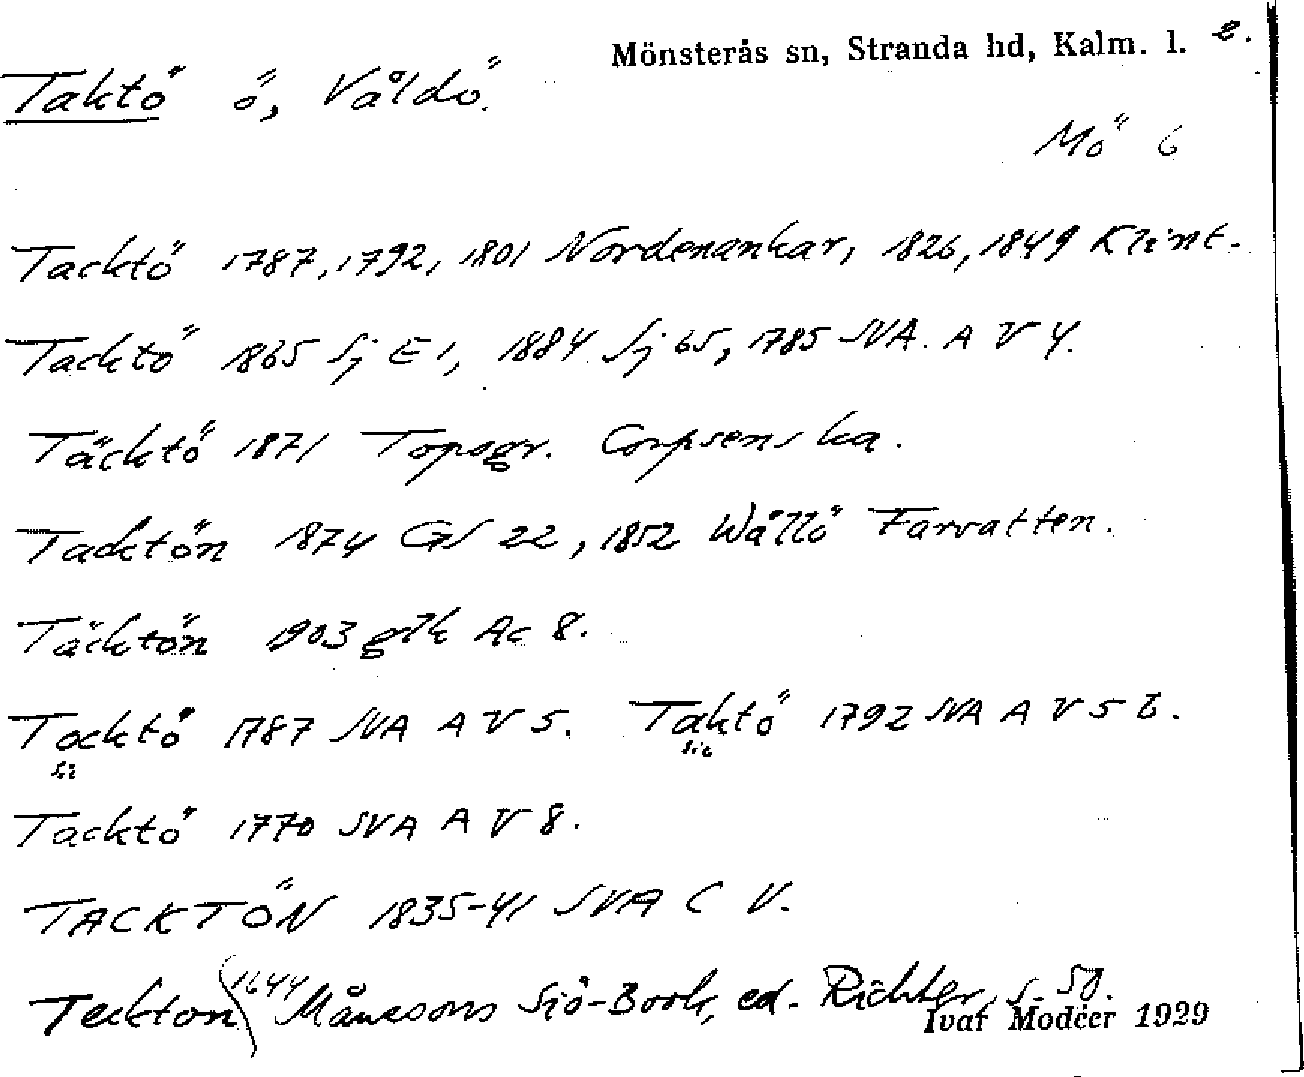 Mönsterås sn, Stranda hd, Kalm. l. e.
Taktö ö, Våldö.
Mö 6
Tacktö 1787, 1792, 1801 Nordenankar, 1826, 1849 Klint.
Tacktö 1865 Sj E 1, 1884 Sj 65, 1785 SVA. A V 4.
Täcktö 1871 Topogr. Corpsens ka.
Tacktön 1874 GS 22, 1852 Wållö Farvatten.
Täcktön 1903 gtk Ac 8.
Tocktö 1787 SVA A V 5. Taktö 1792 SVA A V 5 b.
sic
Tacktö 1770 SVA A V 8.
TACKTÖN 1835-41 SVA C V.
Teckton 1644 Månssons Siö-Book, ed. Richter, s. 50.
Ivar Modéer 1929